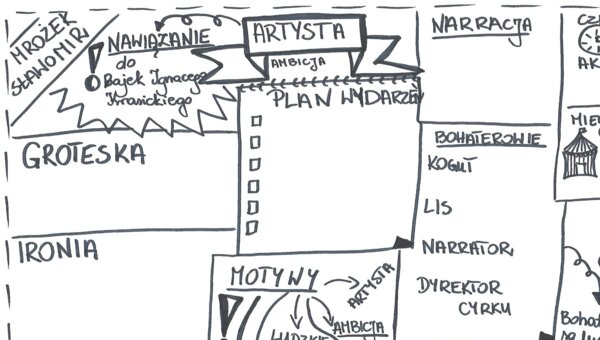 MROŻEK
SŁAWOMIR
NAWIĄZANIE
do
Bajek Ignacego
Krasickiego
ARTYSTA
AMBICJA
PLAN WYDARZEŃ
NARRACJA
AK
GROTESKA
BOHATEROWIE
KOGUT
LIS
NARRATOR
DYREKTOR
CYRKU
IRONIA
MOTYWY
ARTYSTA
AMBICJA
LUDZKIE